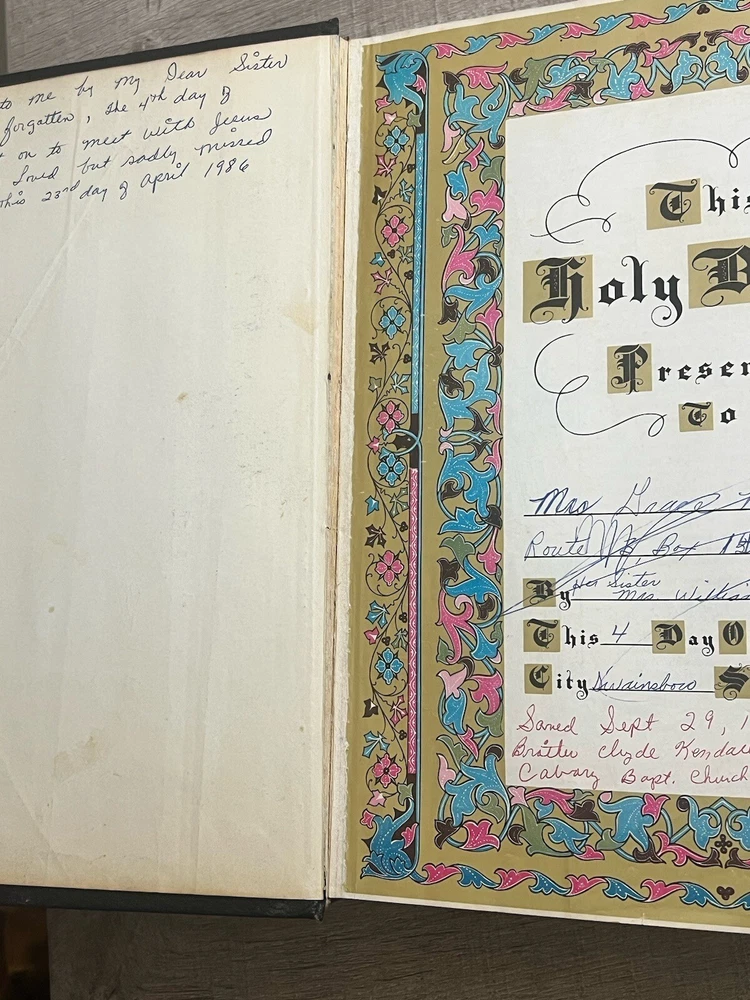 to me by my Dear Sister
forgotten, the 4th day of
on to meet with Jesus
Loved but sadly missed
this 23rd day of April 1986
This
Holy B
Presen
To
Mrs
Route Box
By Her Sister
Mrs.
This 4 Day O
City Swainsboro S
Saved Sept 29, 1
Brother Clyde Kendal
Calvary Bapt. Church